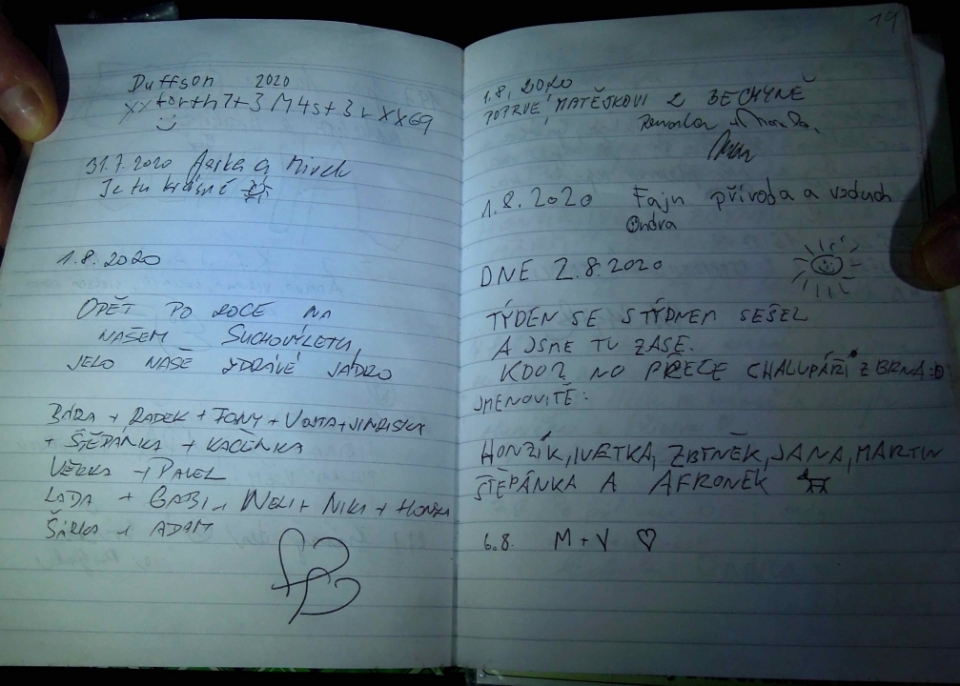 Duffson 2020
xxforth7+3 M4s+3r XX69
31.7.2020 a Mirek
Je tu krásně
1.8.2020
OPĚT PO ROCE NA
NAŠEM SUCHOVÝLETU
JELO NAŠE ZDRAVÉ JÁDRO
BÁRA + RADEK + TONY + VOJTA + JINDŘIŠKA
+ ŠTĚPÁNKA + KAČENKA
VĚRKA + PAVEL
LADA + GABI + NELI + NIKI + HONZA
ŠÁRKA + ADAM
19
1.8. 2020
POPRVÉ, MATĚŠKOVI Z BECHYNĚ
1.8.2020 Fajn příroda a vzduch
Ondra
DNE 2.8.2020
TÝDEN SE S TÝDNEM SEŠEL
A JSME TU ZASE.
KDO? NO PŘECE CHALUPÁŘI Z BRNA :D
JMENOVITĚ:
HONZÍK, IVETKA, ZBYNĚK, JANA, MARTIN
ŠTĚPÁNKA A AFRONĚK
6.8. M + V ♡